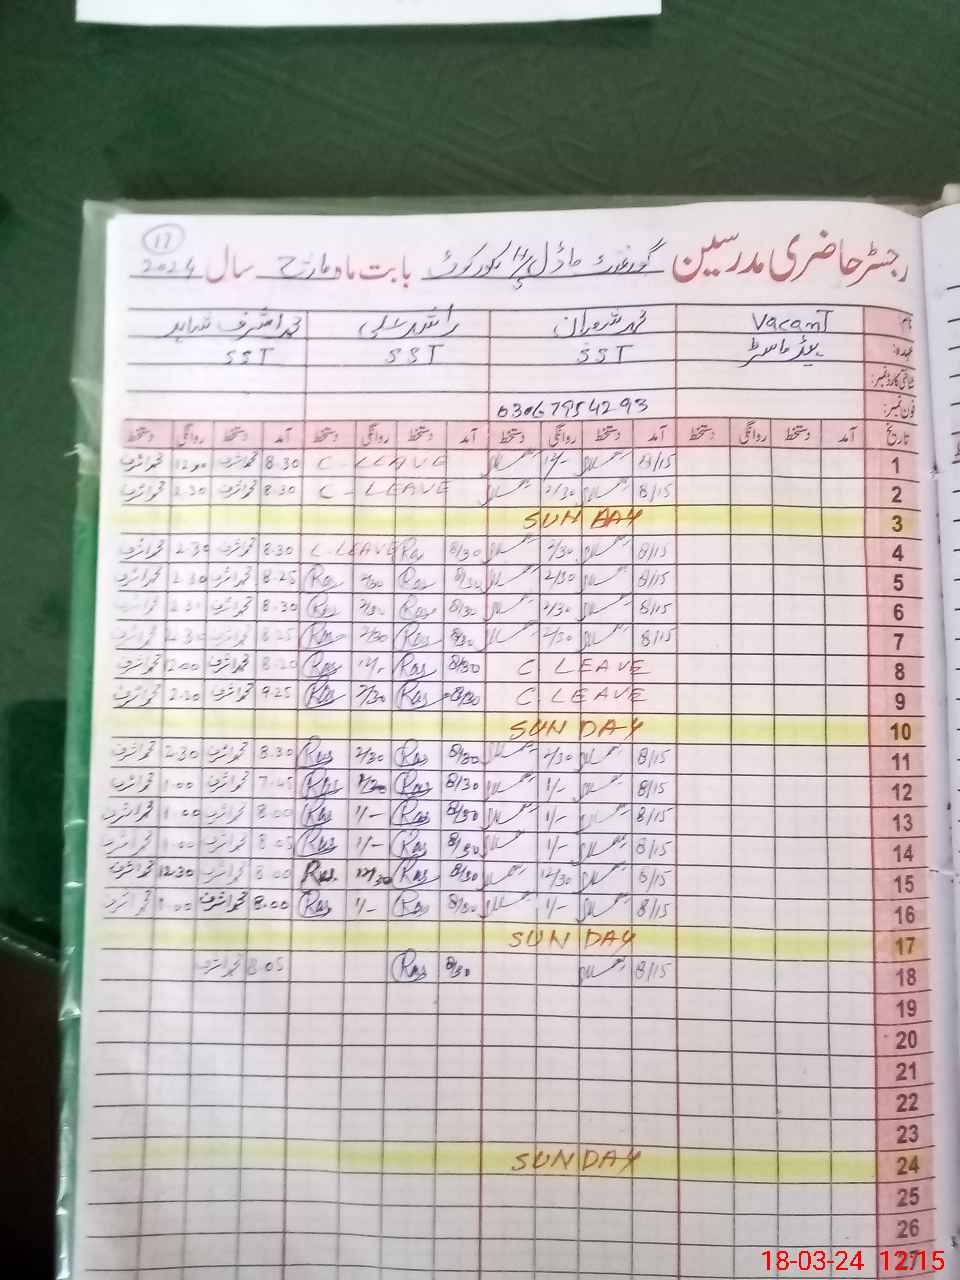 17
رجسٹر حاضری مدرسین گورنمنٹ ماڈل بابت ماہ مارچ سال 2024
نام: Vacant محمد اشرف شاہد
عہدہ: ہیڈ ماسٹر SST SST SST
شناختی کارڈ نمبر:
فون نمبر: 03067954293
تاریخ آمد دستخط روانگی دستخط آمد دستخط روانگی دستخط آمد دستخط روانگی دستخط آمد دستخط روانگی دستخط
1 8/15 12/- C-LEAVE 8.30 محمد اشرف 12.00 محمد اشرف
2 8/15 2/30 C-LEAVE 8.30 محمد اشرف 2.30 محمد اشرف
3 SUNDAY
4 8/15 2/30 8/30 Ras C.LEAVE 8.30 محمد اشرف 2.30 محمد اشرف
5 8/15 2/30 8/30 Ras 2/30 Ras 8.25 محمد اشرف 2.30 محمد اشرف
6 8/15 2/30 8/30 Ras 2/30 Ras 8.30 محمد اشرف 2.30 محمد اشرف
7 8/15 2/30 8/30 Ras 2/30 Ras 8.25 محمد اشرف 2.30 محمد اشرف
8 C.LEAVE 8/30 Ras 12/- Ras 8.20 محمد اشرف 12.00 محمد اشرف
9 C.LEAVE 8/30 Ras 2/30 Ras 9.25 محمد اشرف 2.30 محمد اشرف
10 SUNDAY
11 8/15 2/30 8/30 Ras 2/30 Ras 8.30 محمد اشرف 2.30 محمد اشرف
12 8/15 1/- 8/30 Ras Ras 7.45 محمد اشرف 1.00 محمد اشرف
13 8/15 1/- 8/30 Ras 1/- Ras 8.00 محمد اشرف 1.00 محمد اشرف
14 8/15 1/- 8/30 Ras 1/- Ras 8.05 محمد اشرف 1.00 محمد اشرف
15 8/15 12/30 8/30 Ras 12/30 Ras 8.00 محمد اشرف 12.30 محمد اشرف
16 8/15 1/- 8/30 Ras 1/- Ras 8.00 محمد اشرف 1.00 محمد اشرف
17 SUNDAY
18 8/15 8/30 Ras 8.05 محمد اشرف
19
20
21
22
23
24 SUNDAY
25
26
27
18-03-24 12:15